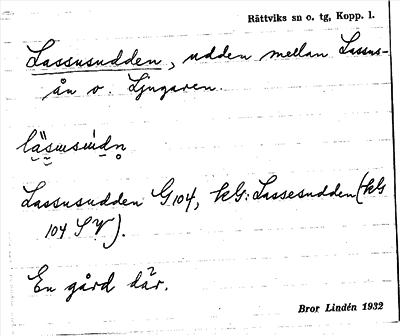 Rättviks sn o. tg, Kopp. l.
Lassusudden, udden mellan Lassus-
ån o. Ljugaren.
Lassusudden G 104, kG: Lassesudden (kG
104 SV).
En gård där.
Bror Lindén 1932